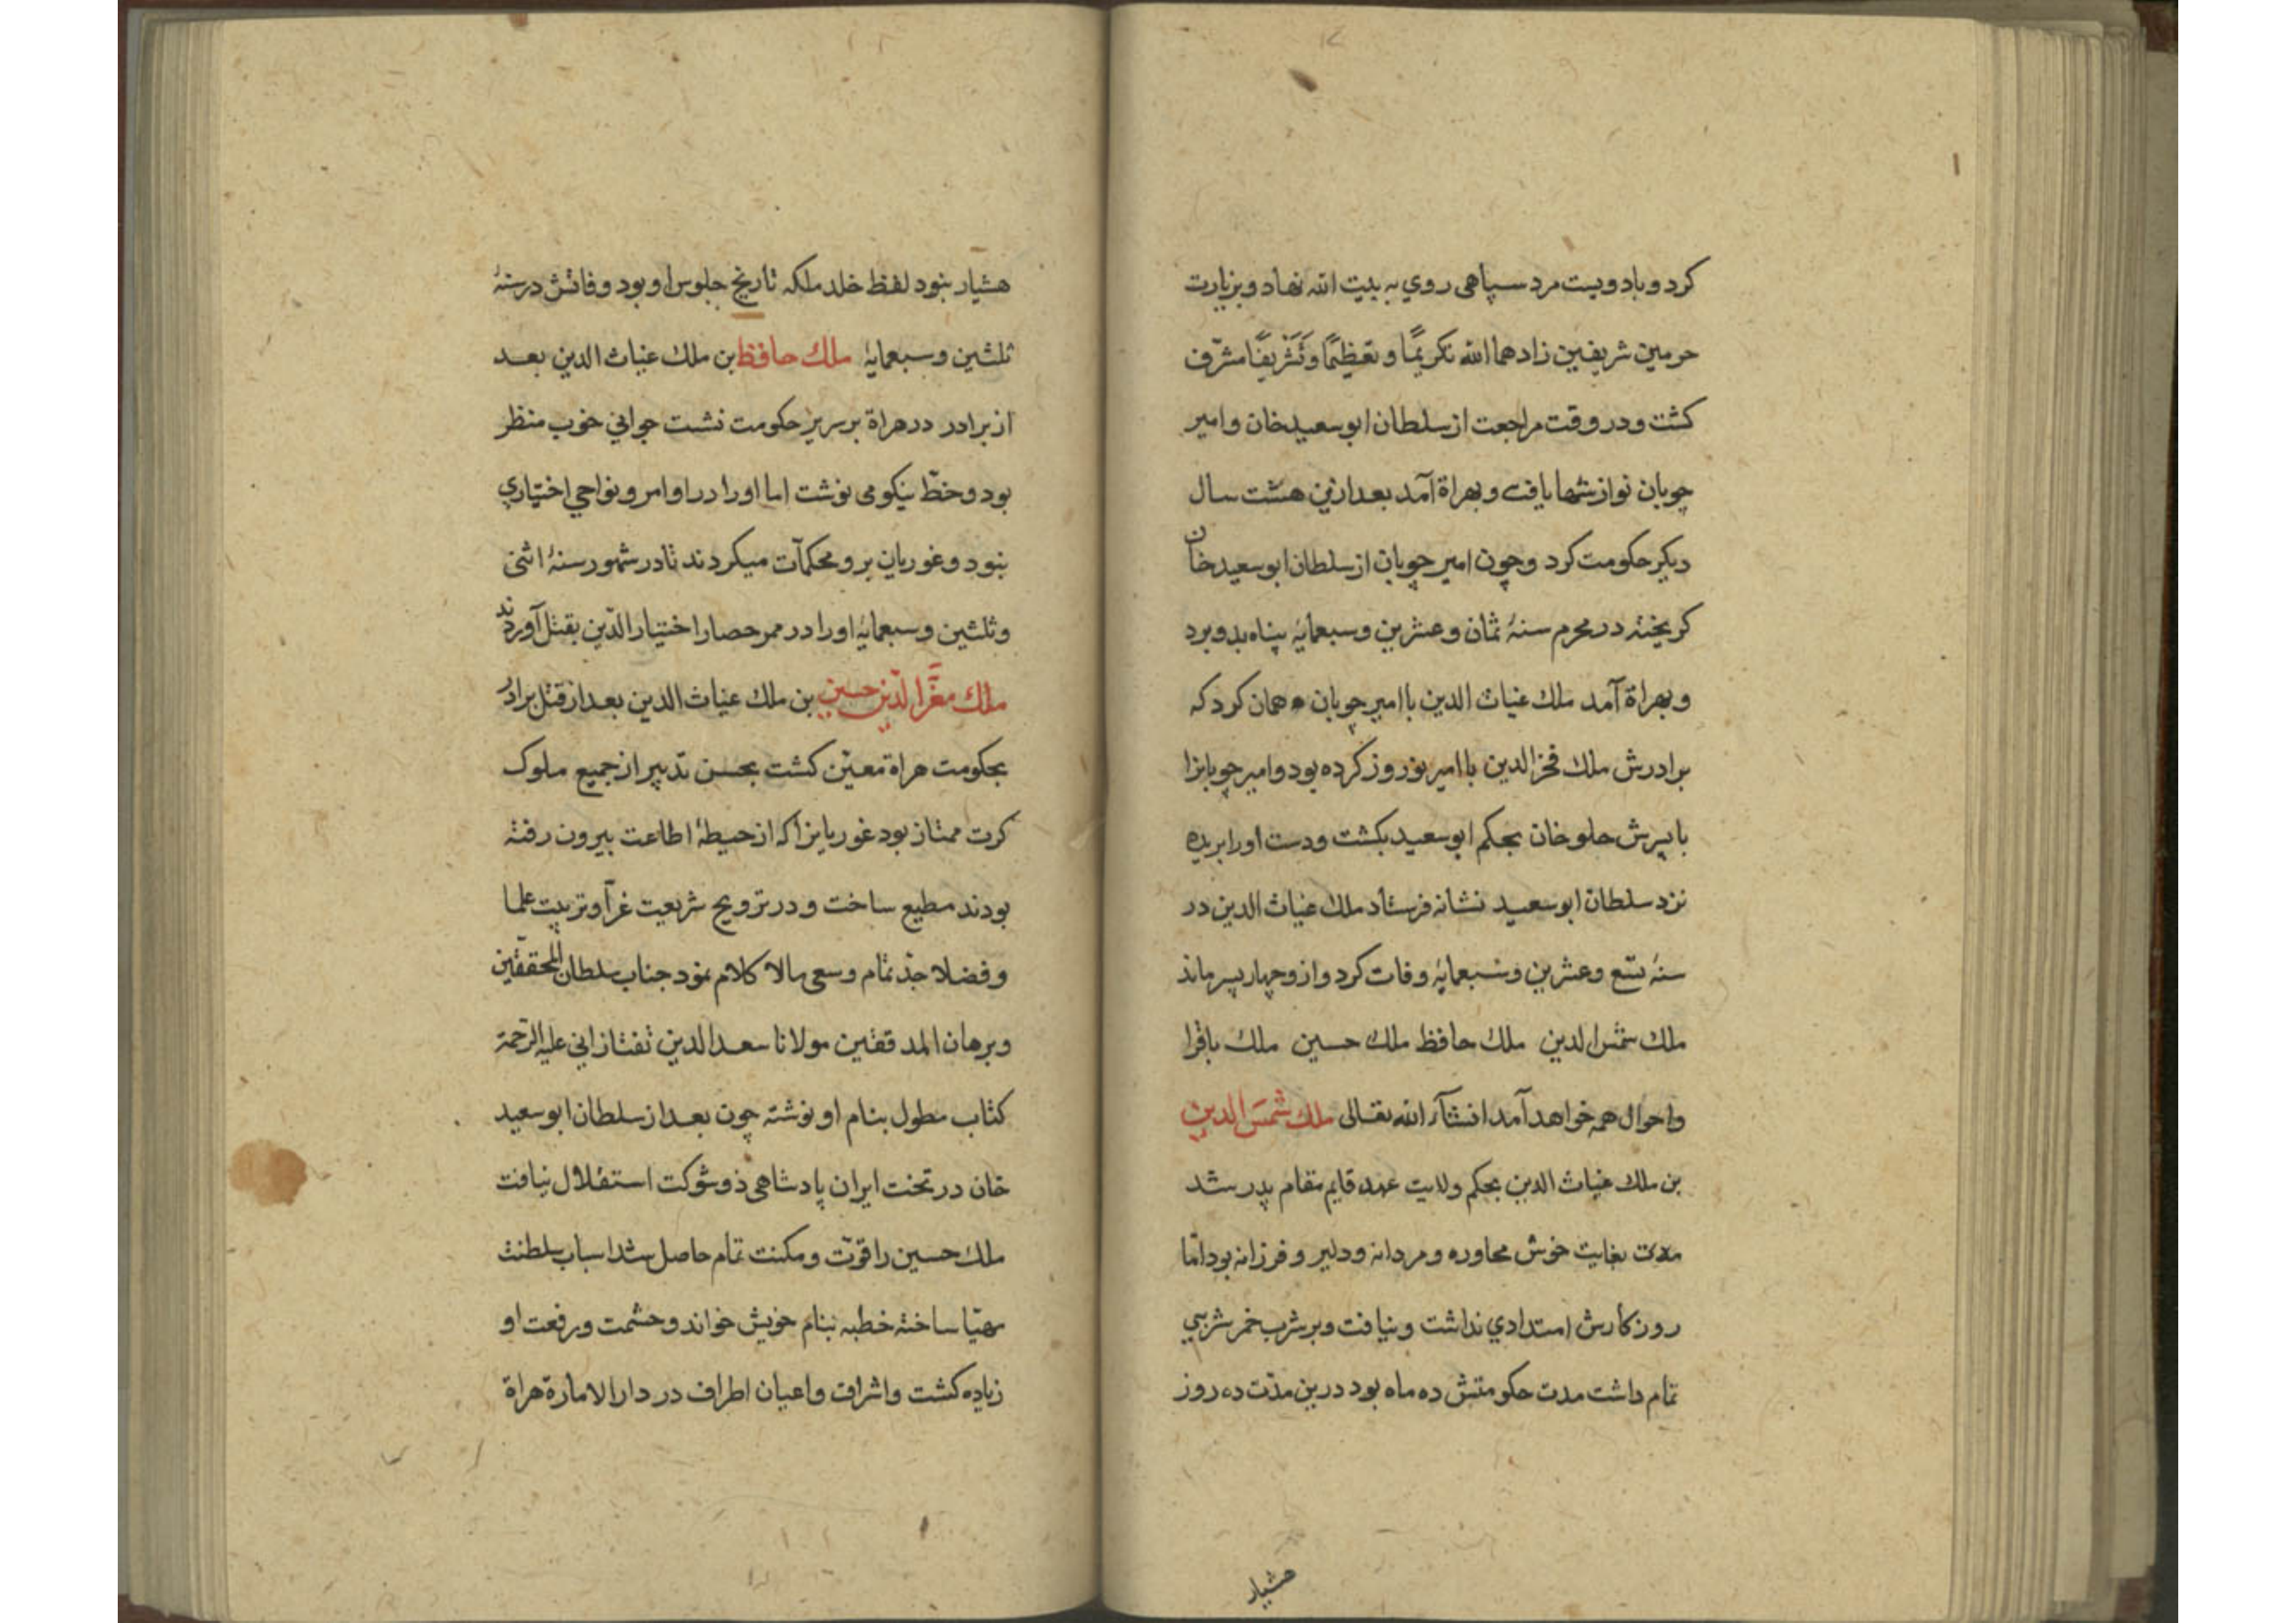 کرد و با دویست مرد سپاهی روي به بیت الله نهاد و بزیارت
حرمین شریفین زادهما الله تکریمًا و تعظیمًا و تَشْریفًا مشرّف
کشت و در وقت مراجعت از سلطان ابو سعید خان و امیر
چوبان نوازشها یافت و بهراة آمد بعد ازین هشت سال
دیکر حکومت کرد و چون امیر چوبان از سلطان ابو سعید خان
کریخته در محرم سنهٔ ثمان و عشرین و سبعمایهٔ پناه بدو برد
و بهراة آمد ملك غیاث الدین با امیر چوبان همان کرد که
برادرش ملك فخر الدین با امیر نوروز کرده بود و امیر چوبانرا
با پسرش جلو خان بحکم ابو سعید بکشت و دست او را بریده
نزد سلطان ابو سعید نشانه فرستاد ملك غیاث الدین در
سنهٔ تسع و عشرین و سبعمایهٔ وفات کرد و ازو چهار پسر ماند
ملك شمس الدین ملك حافظ ملك حسین ملك باقرا
و احوال همه خواهد آمد انشآء الله تعالی ملك شمس الدین
بن ملك غیاث الدین بحکم ولایت عهد قایم مقام پدر شد
بغایت خوش محاوره و مردانه و دلیر و فرزانه بود امّا
روزکارش امتدادي نداشت و نیافت و بر شرب خمر شربی
تمام داشت مدت حکومتش ده ماه بود درین مدّت ده روز
هشیار
هشیار نبود لفظ خلد ملکه تاریخ جلوس او بود وفاتش در سنهٔ
ثلثین و سبعمایهٔ ملك حافظ بن ملك غیاث الدین بعد
از برادر در هراة بر سریر حکومت نشست جوانی خوب منظر
بود و خطّ نیکو می نوشت اما او را در اوامر و نواحی اختیاري
نبود و غوریان برو محکمآت میکردند تا در شهور سنهٔ اثنی
و ثلثین و سبعمایهٔ او را در ممر حصار اختیار الدّین بقتل آوردند
ملك معزّ الدّین حسین بن ملك غیاث الدین بعد از قتل برادر
بحکومت هراة معیّن کشت بحسن تدبیر از جمیع ملوك
کرت ممتاز بود غوریانرا که از حیطهٔ اطاعت بیرون رفته
بودند مطیع ساخت و در ترویج شریعت غرّا و تربیت علما
و فضلا جدّ تمام و سعی مالا کلام نمود جناب سلطان المحققین
و برهان المدققین مولانا سعد الدین تفتازانی علیه الرّحمة
کتاب مطول بنام او نوشته چون بعد از سلطان ابو سعید
خان در تخت ایران پادشاهی ذو شوکت استقلال نیافت
ملك حسین را قوّت و مکنت تمام حاصل شد اسباب سلطنت
مهیّا ساخته خطبه بنام خویش خواند و حشمت و رفعت او
زیاده کشت و اشراف و اعیان اطراف در دار الامارة هراة